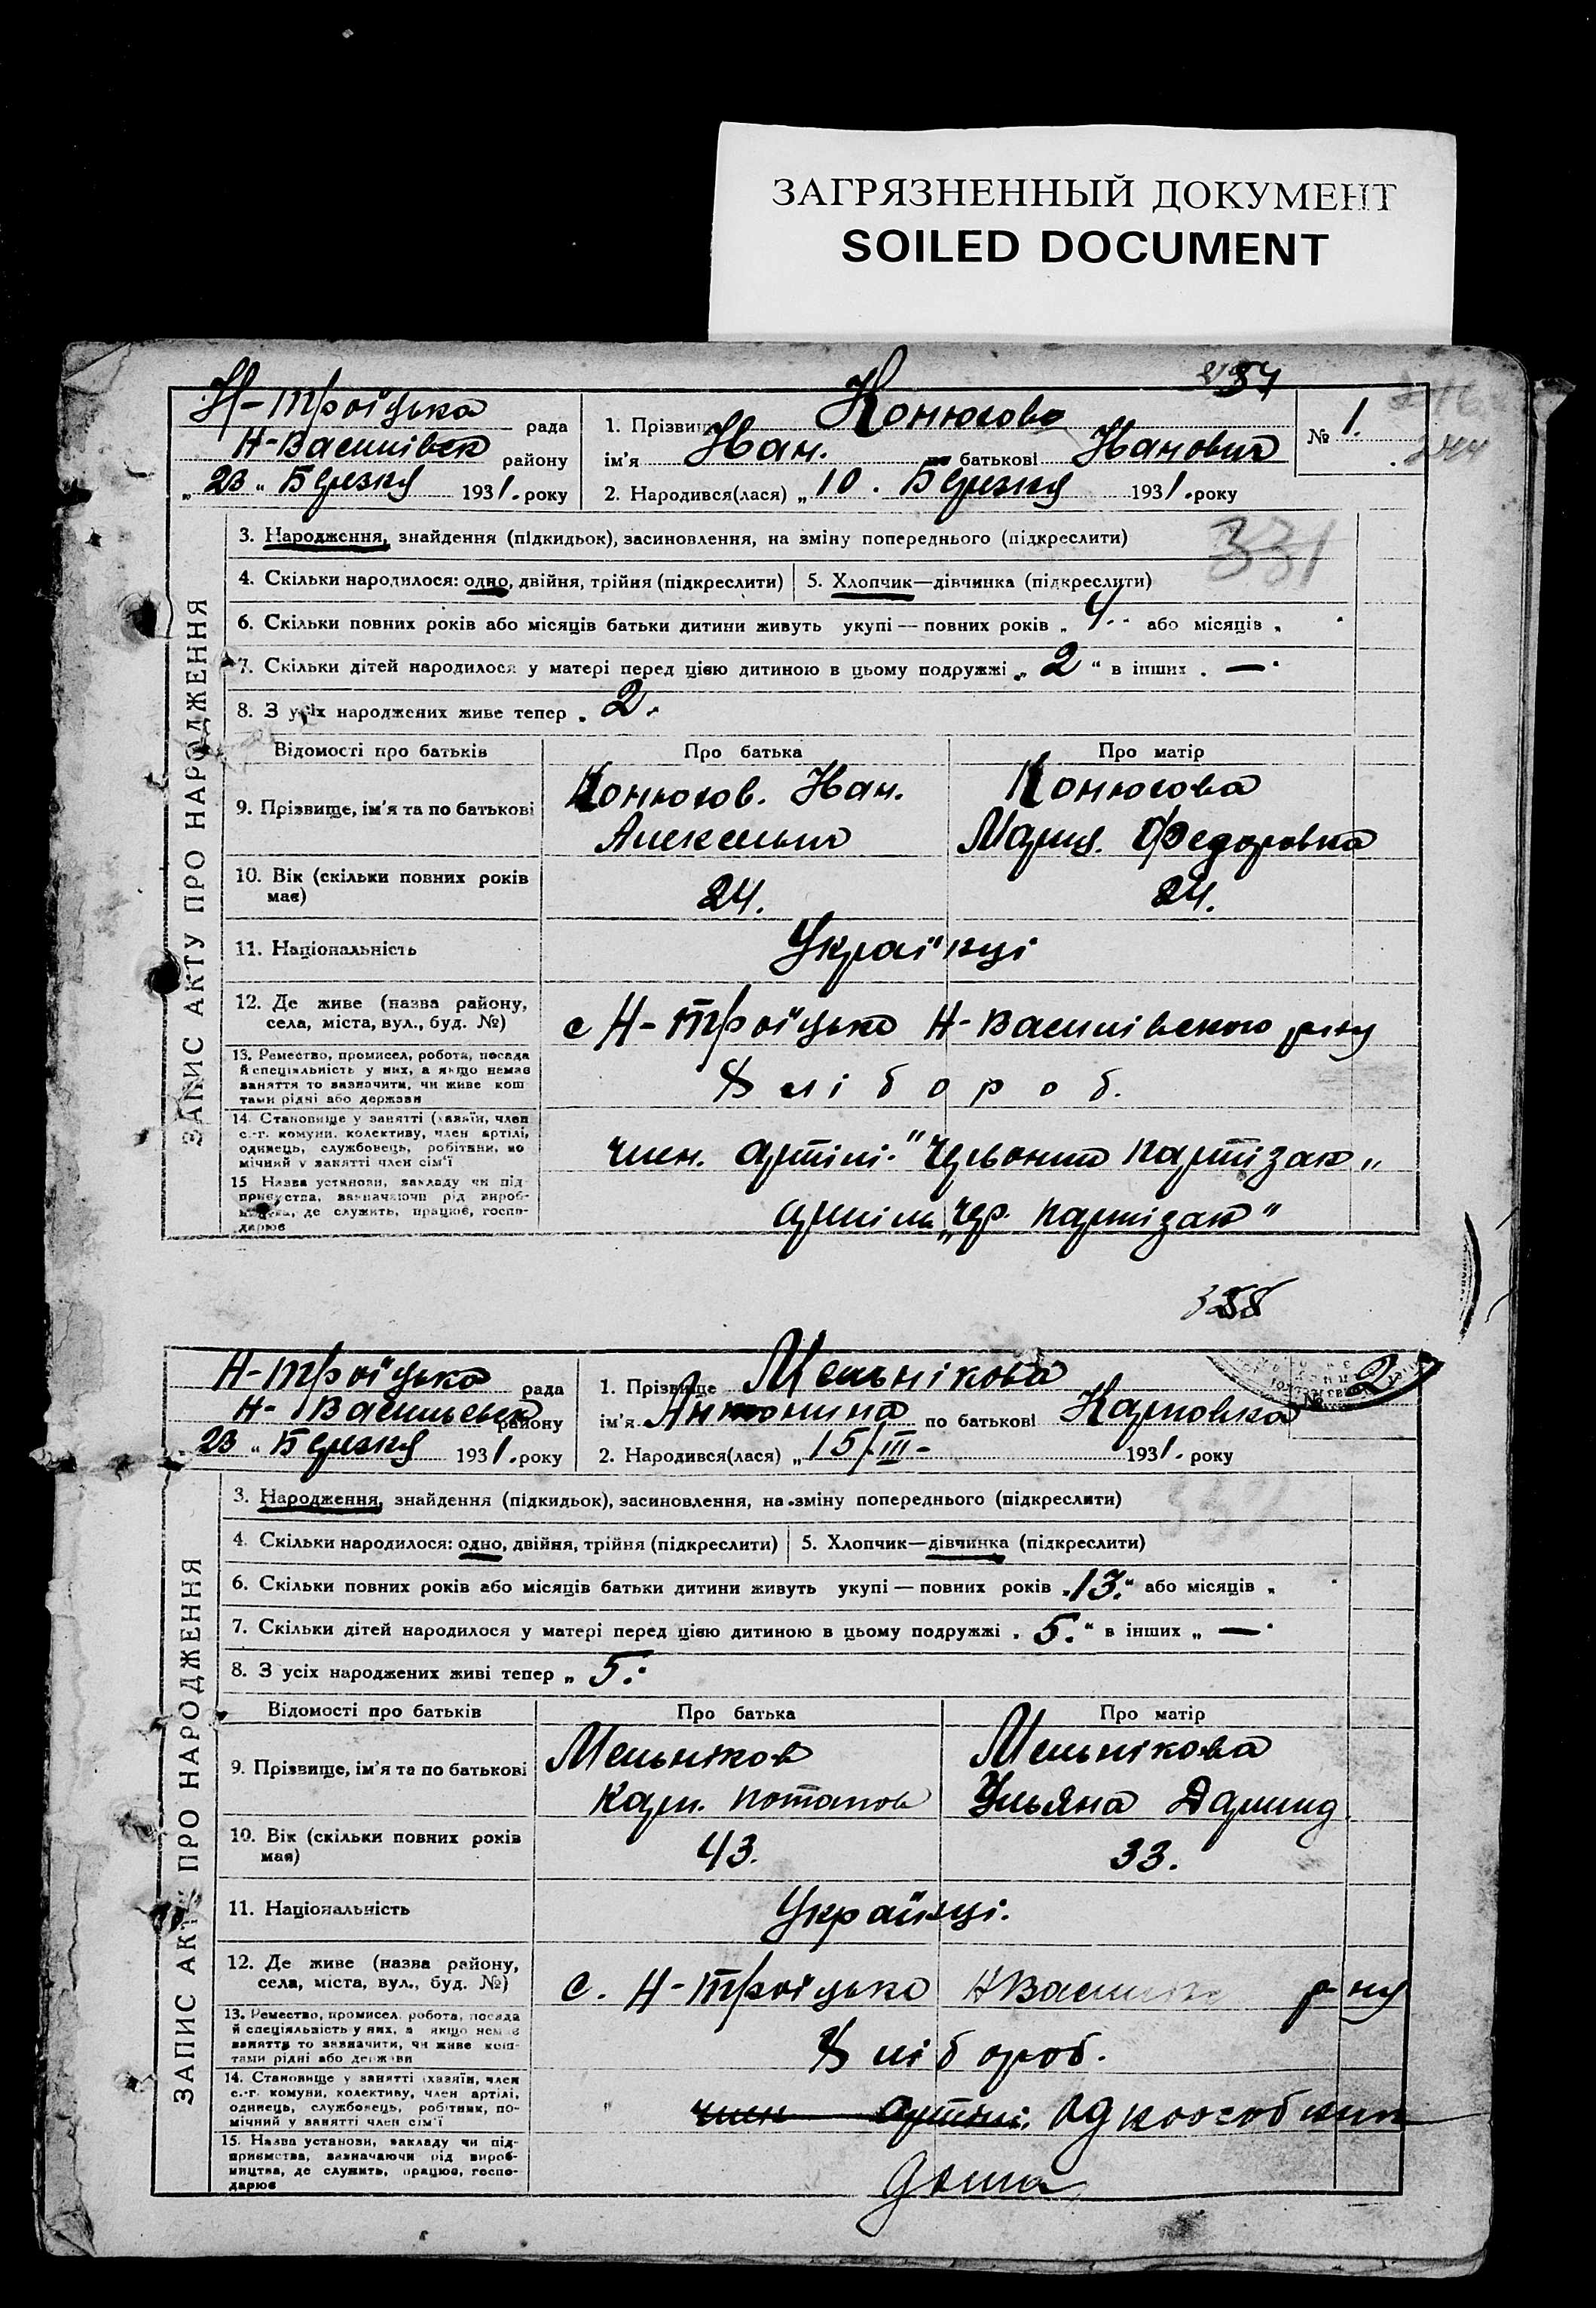 ЗАГРЯЗНЕННЫЙ ДОКУМЕНТ
SOILED DOCUMENT
Н-Троїцька рада
Н-Василівськ району
„23" Березня 1931. року
1. Прізвище Конюгова
ім'я Іван. по батькові Іванович
2. Народився(лася) „10. Березня 1931. року
№ 1.
244
331
3. Народження, знайдення (підкидьок), засиновлення, на зміну попереднього (підкреслити)
4. Скільки народилося: одно, двійня, трійня (підкреслити)
5. Хлопчик—дівчинка (підкреслити)
6. Скільки повних років або місяців батьки дитини живуть укупі — повних років „4" або місяців „
7. Скільки дітей народилося у матері перед цією дитиною в цьому подружжі „2" в інших „—"
8. З усіх народжених живе тепер „2"
Відомості про батьків Про батька Про матір
9. Прізвище, ім'я та по батькові
Конюгов. Іван. Конюгова
Алексеевич Мария. Федоровна
10. Вік (скільки повних років
має)
24. 24.
11. Національність Українці
12. Де живе (назва району,
села, міста, вул., буд. №)
с Н-Троїцьке Н-Василівского р-ну
13. Ремество, промисел, робота, посада
й спеціяльність у них, а якщо немає
заняття то зазначити, чи живе кош
тами рідні або держави
Хлібороб.
14. Становище у занятті (хазяїн, член
с.-г. комуни, колективу, член артілі,
одинець, службовець, робітник, по
мічний у занятті член сім'ї
член. артілі. "Червоний партізан„
15 Назва установи, закладу чи під
приємства, зазначаючи рід вироб-
ництва, де служить, працює, госпо-
дарює
артіль „Чер. партізан"
ЗАПИС АКТУ ПРО НАРОДЖЕННЯ
358
Н-Троїцька рада
Н-Васильевск району
23 „Березня 1931. року
1. Прізвище Мельнікова
ім'я Антонина по батькові Карповна
2. Народився(лася) „15/III- 1931. року
№ 2
3. Народження, знайдення (підкидьок), засиновлення, на зміну попереднього (підкреслити)
4. Скільки народилося: одно, двійня, трійня (підкреслити)
5. Хлопчик—дівчинка (підкреслити)
6. Скільки повних років або місяців батьки дитини живуть укупі — повних років „13." або місяців „
7. Скільки дітей народилося у матері перед цією дитиною в цьому подружжі „5." в інших „—"
8. З усіх народжених живі тепер „5."
Відомості про батьків Про батька Про матір
9. Прізвище, ім'я та по батькові
Мельніков Мельнікова
Карп. Потапов Ульяна
10. Вік (скільки повних років
має)
43. 33.
11. Національність Українці.
12. Де живе (назва району,
села, міста, вул., буд. №)
с. Н-Троїцьке р-ну
13. Ремество, промисел, робота, посада
й спеціяльність у них, а якщо немає
заняття то зазначити, чи живе кош-
тами рідні або держави
Хлібороб.
14. Становище у занятті (хазяїн, член
с.-г. комуни, колективу, член артілі,
одинець, службовець, робітник, по-
мічний у занятті член сім'ї
член артілі. Одноособник
15. Назва установи, закладу чи під-
приємства, зазначаючи рід вироб-
ництва, де служить, працює, госпо-
дарює
дома
ЗАПИС АКТУ ПРО НАРОДЖЕННЯ